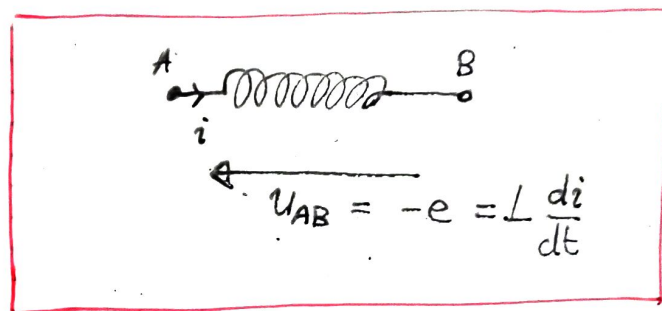 A
B
i
u_AB = -e = L di/dt